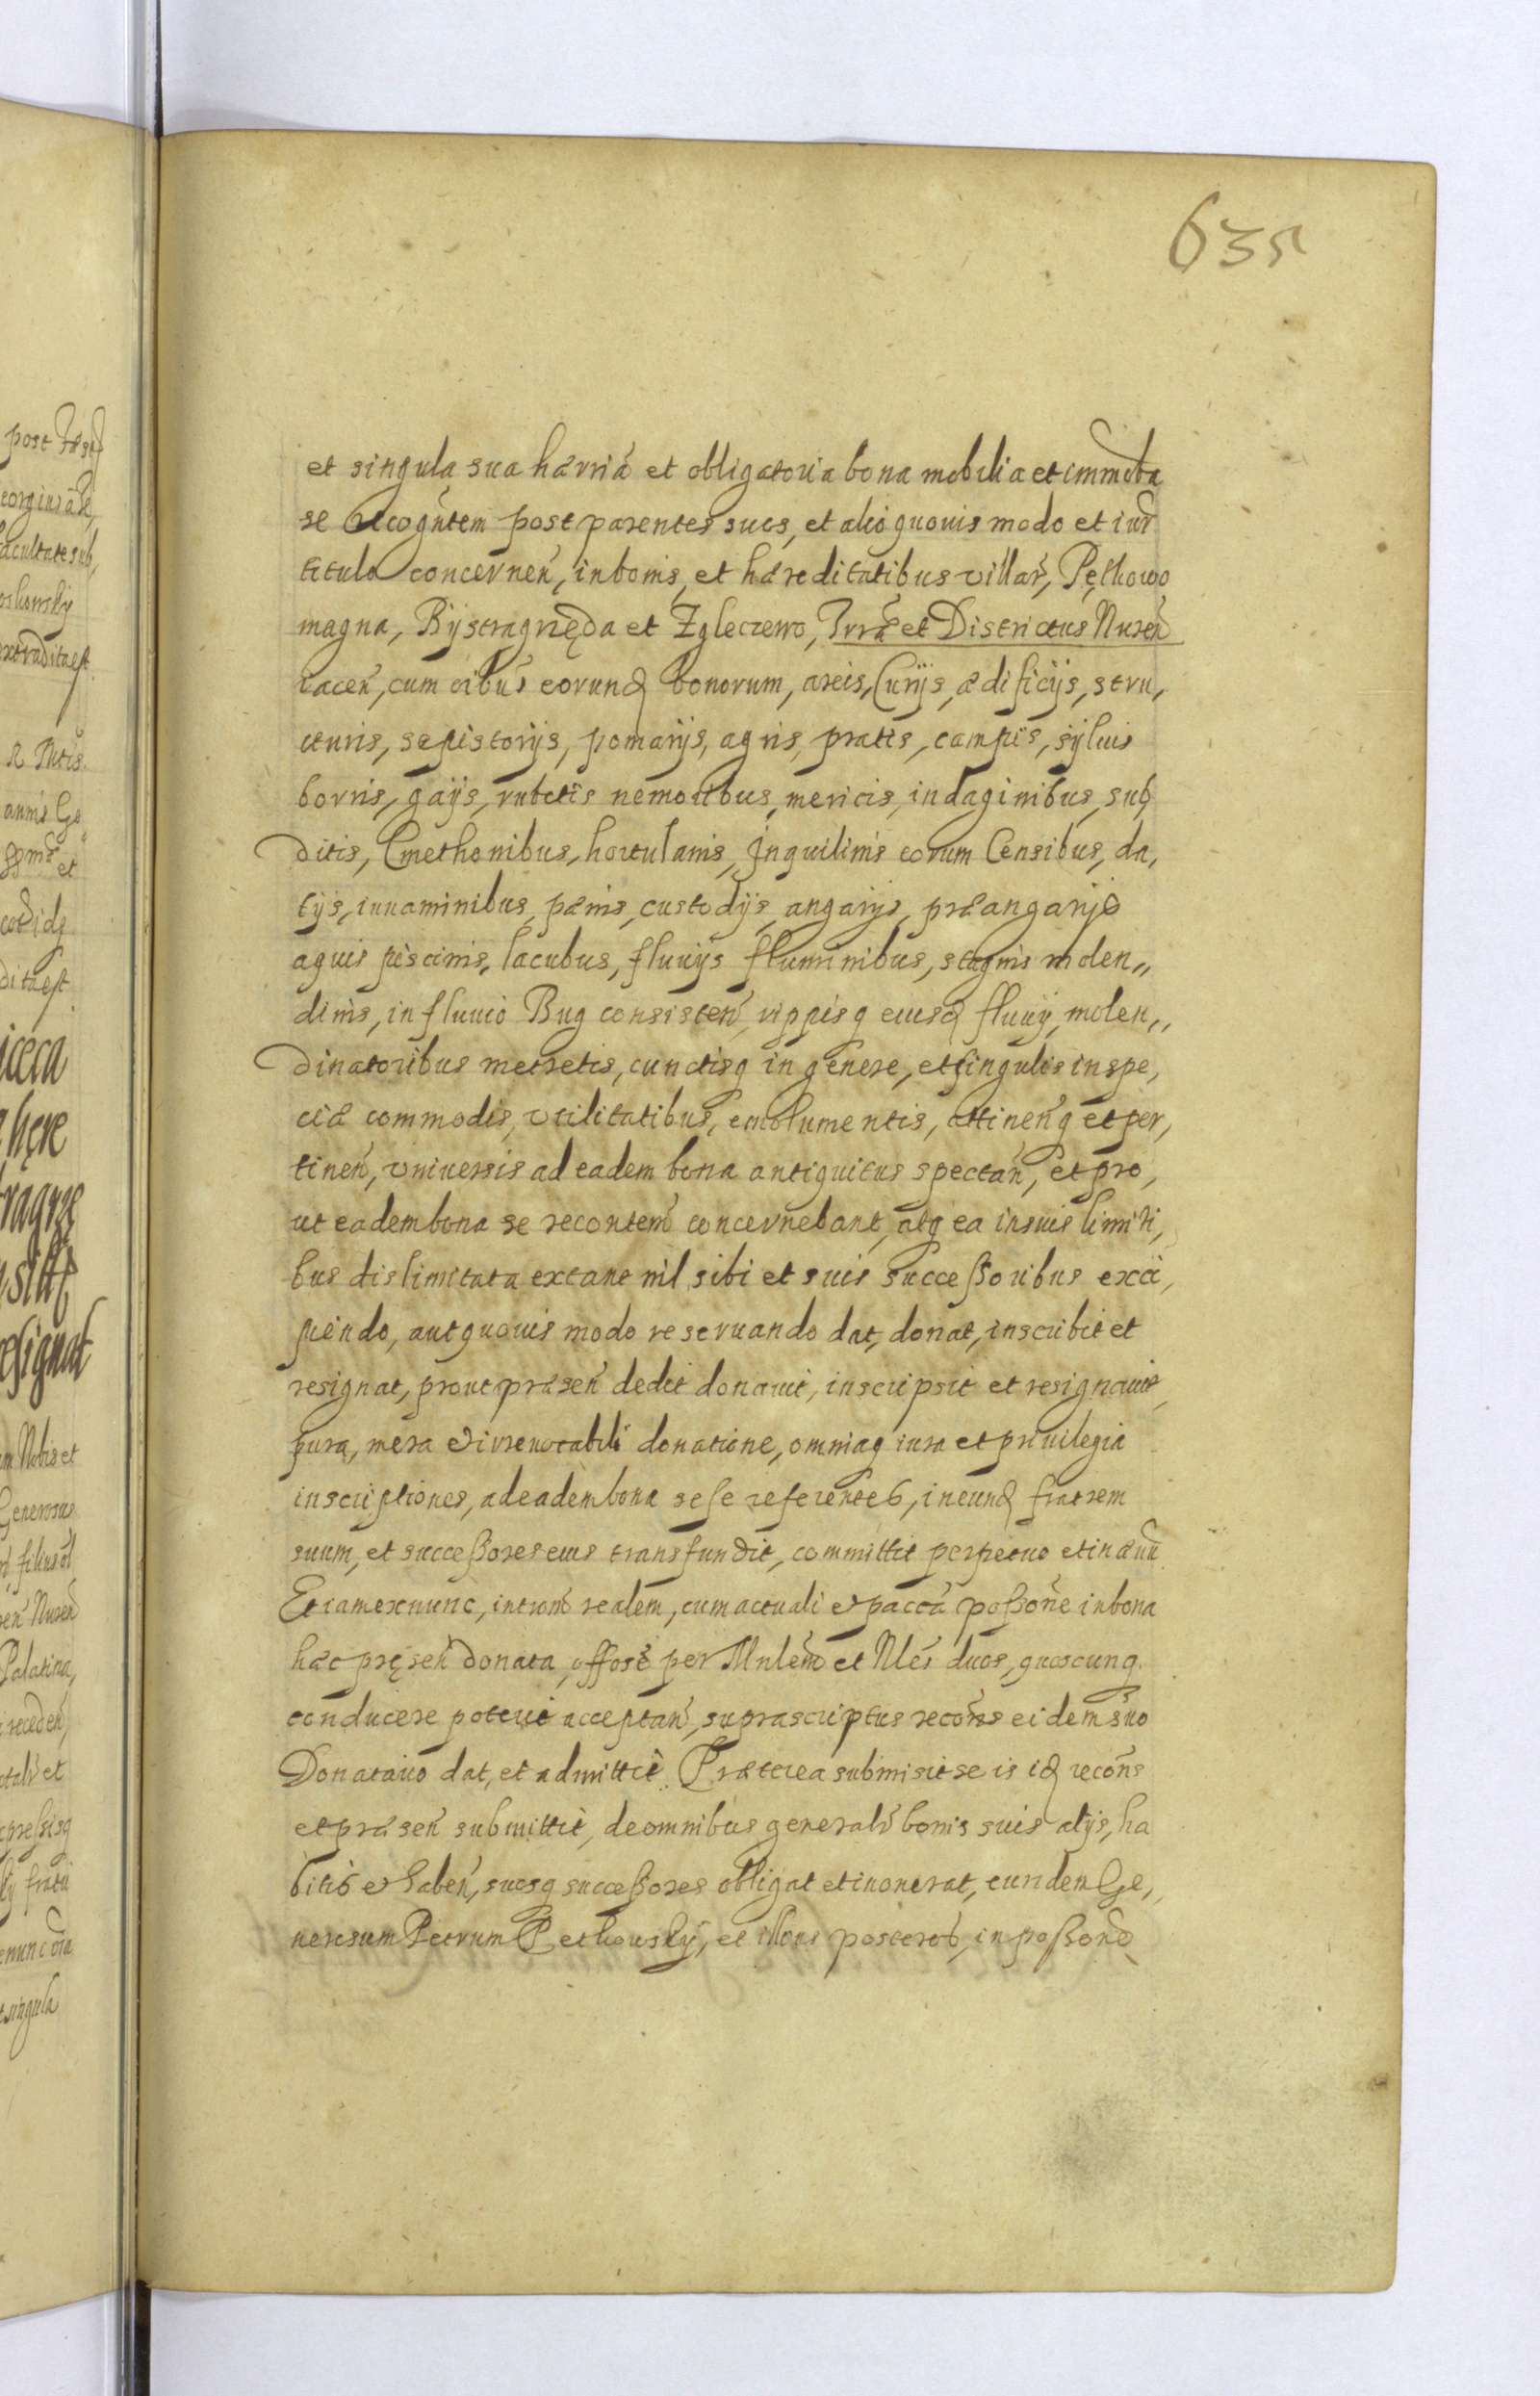 635
et singula sua hærria et obligatoria bona mobilia et immoba
se recogntem post parentes suos, et alio quouis modo et iur
titulo concernen, in bonis, et hæreditatibus villar, Pęthowo
magna, Bystragzęda et Zgleczewo, Trræ et Districtus Nuren
iacen, cum oibus eorund bonorum, areis, Curijs, ædificijs, stru,
cturis, sepistorijs, pomarijs, agris, pratis, campis, syluis
borris, gaijs, rubetis nemoribus, mericis, indaginibus, sub,
ditis, Cmethonibus, hortulanis, Jnquilinis eorum Censibus, da,
tijs, iuuaminibus, pænis, custodijs, angarijs, præangarijs
aquis piscinis, lacubus, fluuijs fluminibus, stagnis molen„
dinis, in fluuio Bug consisten, rippisq eiusd fluuij, molen„
dinatoribus metretis, cunctisq in genere, et singulis in spe,
ciæ commodis, vtilitatibus, emolumentis, attinenq et per,
tinen, vniuersis ad eadem bona antiquitus spectan, et pro,
ut eadem bona se recontem concernebant, atq ea in suis limiti,
bus dislimitata extant nil sibi et suis successoribus exci,
piendo, aut quouis modo reseruando dat, donat, inscribit et
resignat, prout præsen dedit donauit, inscripsit et resignauit,
pura, mera et irreuocabili donatione, omniaq iura et priuilegia
inscriptiones, ad eadem bona sese referentes, in eund fratrem
suum, et successores eius transfundit, committit perpetuo et in æuu
Et iam ex nunc, introm realem, cum actuali et pacca possone in bona
hæc pręsen donata, offose per Mnlem et Nles duos, quoscunq
conducere potuit acceptan, suprascriptus recons eidem suo
Donatario dat, et admittit. Præterea submisit se is id recons
et præsen submittit, de omnibus generalr bonis suis alijs, ha
bitis et haben, suosq successores obligat et inonerat, eundem Ge,
nerosum Petrum Pethowsky, et illius posteros, in possone